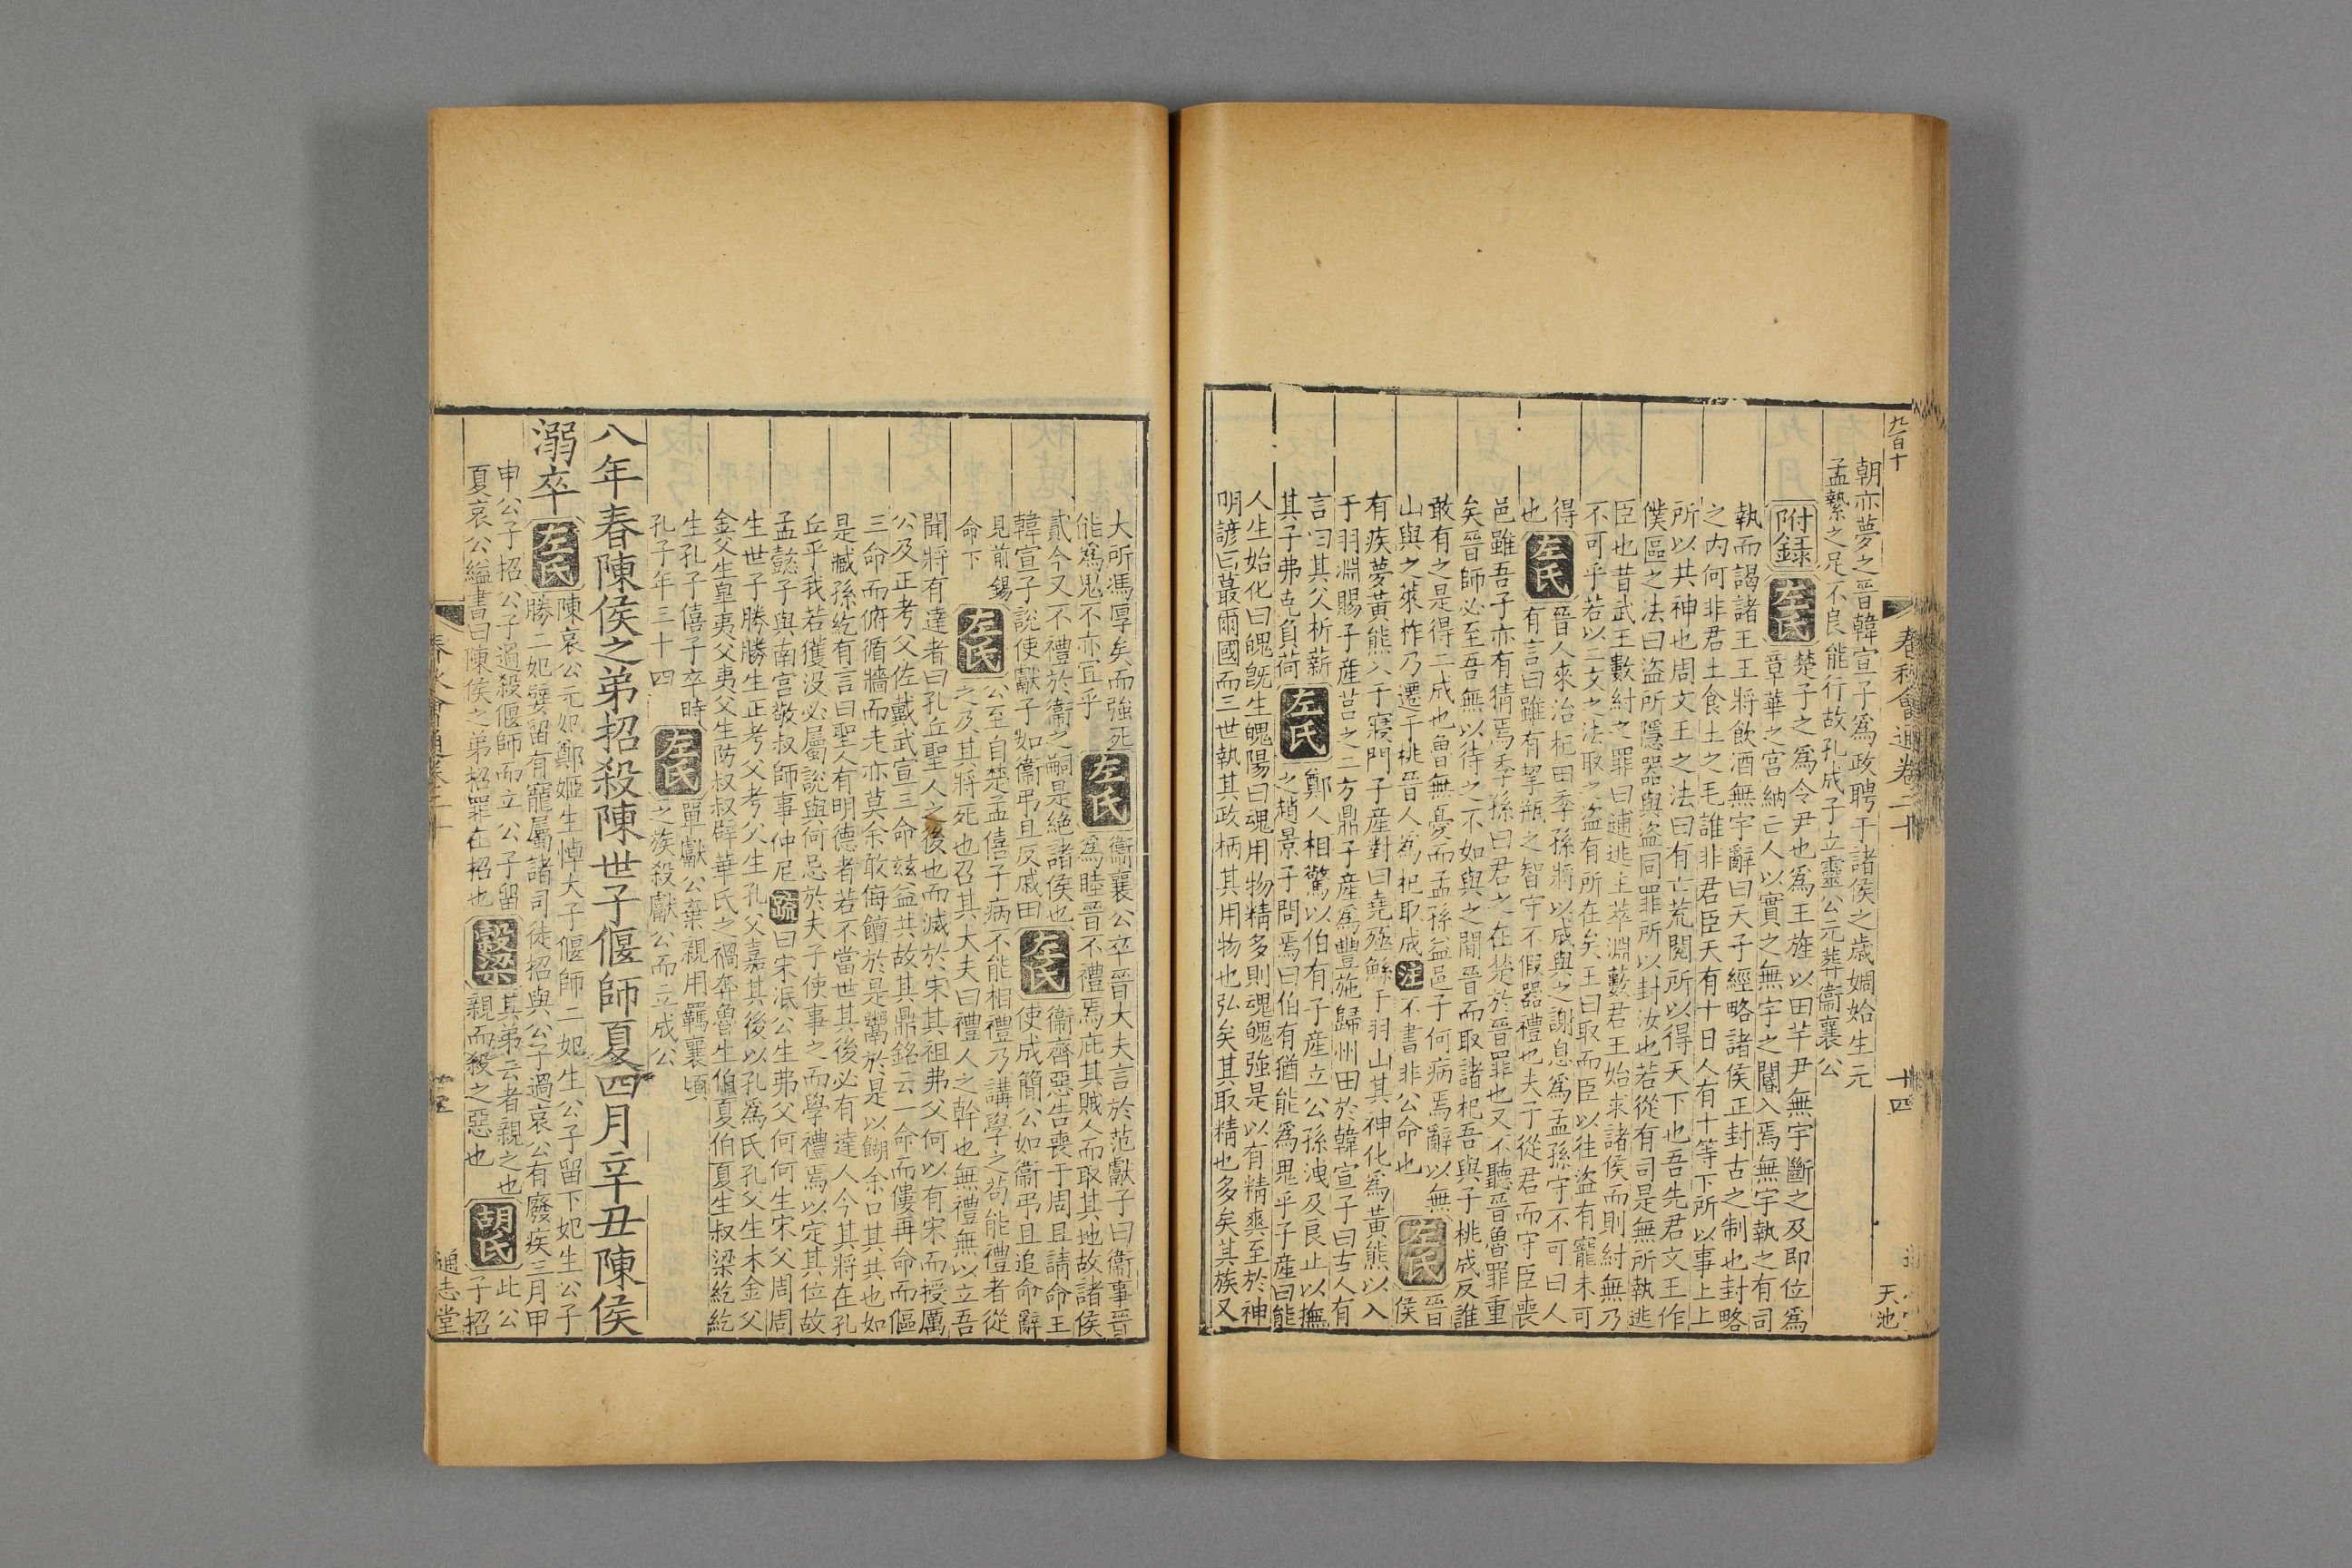 九百十
春秋會通卷二十
十四
天池
朝亦夢之晉韓宣子爲政聘于諸侯之歳婤姶生元
孟縶之足不良能行故孔成子立靈公元葬衞襄公
附録 左氏 楚子之爲令尹也爲王旌以田芋尹無宇斷之及即位爲
章華之宮納亡人以實之無宇之閽入焉無宇執之有司
執而謁諸王王將飲酒無宇辭曰天子經略諸侯正封古之制也封略
之内何非君土食土之毛誰非君臣天有十日人有十等下所以事上上
所以共神也周文王之法曰有亡荒閱所以得天下也吾先君文王作
僕區之法曰盗所隱器與盗同罪所以封汝也若從有司是無所執逃
臣也昔武王數紂之罪曰逋逃主萃淵藪君王始求諸侯而則紂無乃
不可乎若以二文之法取之盗有所在矣王曰取而臣以往盗有寵未可
得
也 左氏 晉人來治杞田季孫將以成與之謝息爲孟孫守不可曰人
有言曰雖有挈瓶之智守不假器禮也夫子從君而守臣喪
邑雖吾子亦有猜焉季孫曰君之在楚於晉罪也又不聽晉魯罪重
矣晉師必至吾無以待之不如與之間晉而取諸杞吾與子桃成反誰
敢有之是得二成也魯無憂而孟孫益邑子何病焉辭以無
山與之萊柞乃遷于桃晉人爲杞取成 注 不書非公命也 左氏 晉
侯
有疾夢黃熊入于寢門子產對曰堯殛鯀于羽山其神化爲黃熊以入
于羽淵賜子產莒之二方鼎子產爲豐施歸州田於韓宣子曰古人有
言曰其父析薪
其子弗克負荷 左氏 鄭人相驚以伯有子產立公孫洩及良止以撫
之趙景子問焉曰伯有猶能爲鬼乎子產曰能
人生始化曰魄旣生魄陽曰魂用物精多則魂魄強是以有精爽至於神
明諺曰蕞爾國而三世執其政柄其用物也弘矣其取精也多矣其族又
大所馮厚矣而強死
能爲鬼不亦宜乎 左氏 衞襄公卒晉大夫言於范獻子曰衞事晉
爲睦晉不禮焉庇其賊人而取其地故諸侯
貳今又不禮於衞之嗣是絶諸侯也
韓宣子說使獻子如衞弔且反戚田 左氏 衞齊惡告喪于周且請命王
使成簡公如衞弔且追命辭
見前錫
命下 左氏 公至自楚孟僖子病不能相禮乃講學之苟能禮者從
之及其將死也召其大夫曰禮人之幹也無禮無以立吾
聞將有達者曰孔丘聖人之後也而滅於宋其祖弗父何以有宋而授厲
公及正考父佐戴武宣三命兹益共故其鼎銘云一命而僂再命而傴
三命而俯循牆而走亦莫余敢侮饘於是鬻於是以餬余口其共也如
是臧孫紇有言曰聖人有明德者若不當世其後必有達人今其將在孔
丘乎我若獲没必屬說與何忌於夫子使事之而學禮焉以定其位故
孟懿子與南宮敬叔師事仲尼 疏 曰宋泯公生弗父何何生宋父周周
生世子勝勝生正考父考父生孔父嘉其後以孔爲氏孔父生木金父
金父生皐夷父夷父生防叔叔辟華氏之禍奔魯生伯夏伯夏生叔梁紇紇
生孔子僖子卒時
孔子年三十四 左氏 單獻公棄親用羈襄頃
之族殺獻公而立成公
八年春陳侯之弟招殺陳世子偃師夏四月辛丑陳侯
溺卒 左氏 陳哀公元妃鄭姬生悼大子偃師二妃生公子留下妃生公子
勝二妃嬖留有寵屬諸司徒招與公子過哀公有廢疾三月甲
申公子招公子過殺偃師而立公子留
夏哀公縊書曰陳侯之弟招罪在招也 穀梁 其弟云者親之也
親而殺之惡也 胡氏 此公
子招
通志堂